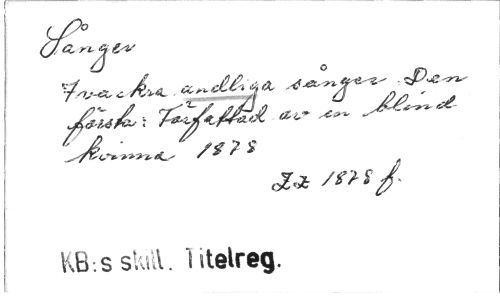 Sånger
Tvackra andliga sånger. Den
första: Författad av en blind
kvinna 1878
Zz 1878 f.
KB:s skill. Titelreg.